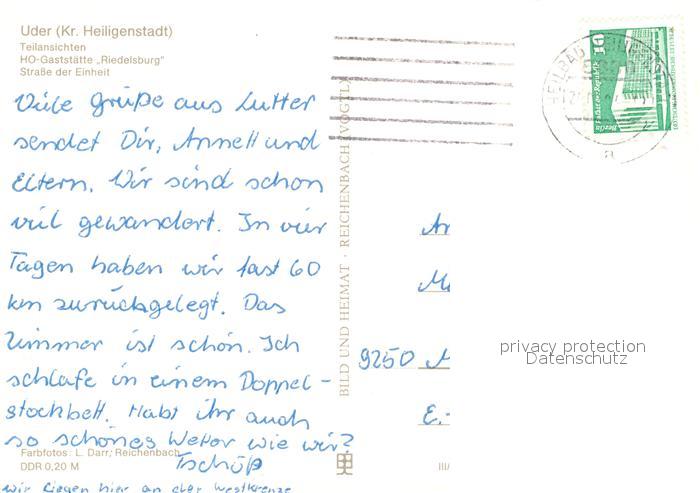 Uder (Kr. Heiligenstadt)
Teilansichten
HO-Gaststätte „Riedelsburg"
Straße der Einheit
Viele Grüße aus Lutter
sendet Dir, Annett und
Eltern. Wir sind schon
viel gewandert. In vier
Tagen haben wir fast 60
km zurückgelegt. Das
Zimmer ist schön. Ich
schlafe in einem Doppel-
stockbett. Habt ihr auch
so schönes Wetter wie wir?
Tschüß
wir liegen hier an der Westkrenze
Farbfotos: L. Darr, Reichenbach
DDR 0,20 M
BILD UND HEIMAT · REICHENBACH (VOGTL
III/
HEILBAD
10
Berlin
Ar
M
9250 M
E.-
privacy protection
Datenschutz